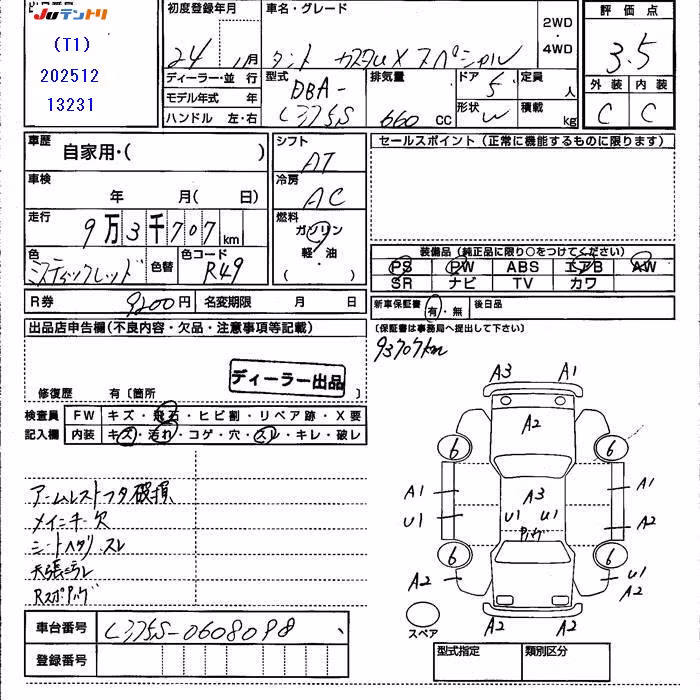 JUテントリ
(T1)
202512
13231
初度登録年月
24 月
車名・グレード
タント カスタムX スペシャル
2WD・4WD
評価点
3.5
ディーラー・並行
モデル年式 年
ハンドル 左・右
型式
DBA-L375S
排気量
660 cc
ドア
5
形状
W
定員 人
積載 kg
外装 内装
C C
車歴
自家用・( )
シフト
AT
セールスポイント(正常に機能するものに限ります)
車検
年 月( 日)
冷房
AC
走行
9万3千707km
燃料
ガソリン
軽・油
( )
色
ミスティックレッド
色替
色コード
R49
装備品(純正品に限り○をつけてください)
PS PW ABS エアB AW
SR ナビ TV カワ
R券
9200円
名変期限 月 日
新車保証書
有・無
後日品
(保証書は事務局へ提出して下さい)
93707km
出品店申告欄(不良内容・欠品・注意事項等記載)
ディーラー出品
修復歴 有〔箇所 〕
検査員記入欄
FW キズ・飛石・ヒビ割・リペア跡・X要
内装 キズ・汚れ・コゲ・穴・スレ・キレ・破レ
アームレストフタ破損
メインキー欠
シートヘタリ、スレ
天張ニラレ
A3 A1
A2
6 6
A1 A3 A1
U1 U1 U1 A2
6 6
A2 U1
A2
A2 A2
スペア
車台番号
L375S-0608098
登録番号
型式指定 類別区分